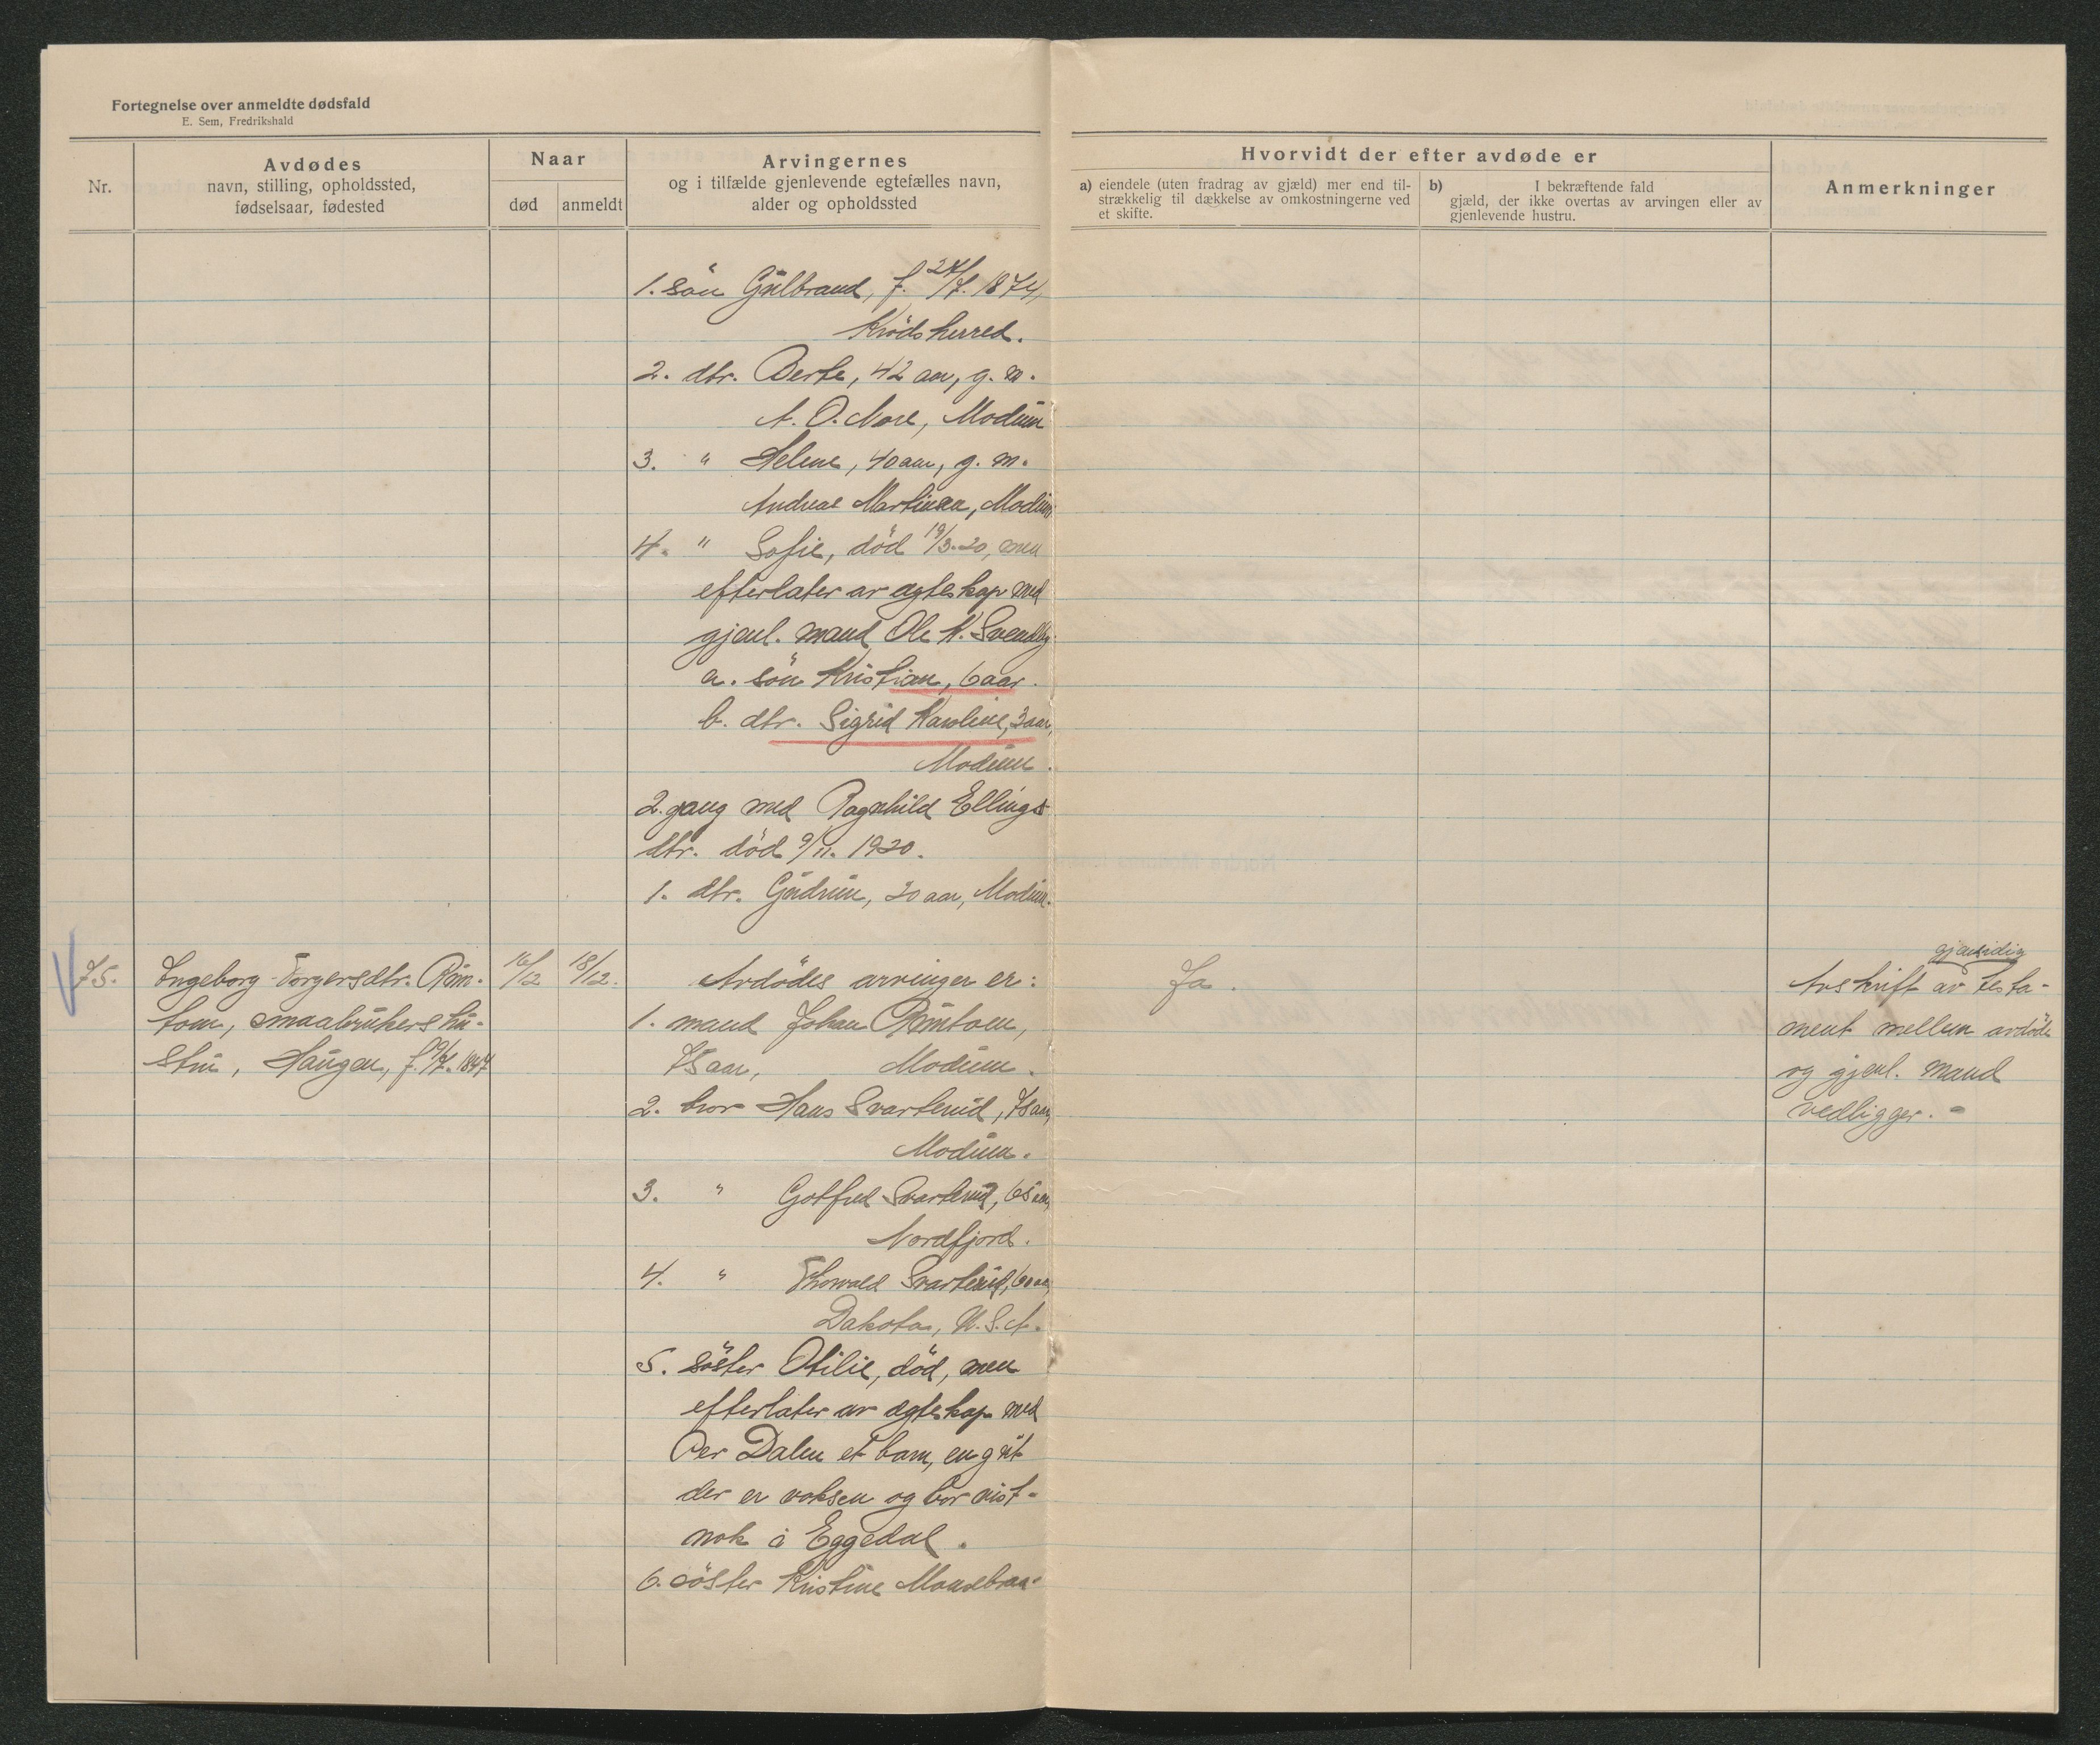 Fortegnelse over anmeldte dødsfald
E. Sem, Fredrikshald
Nr.
Avdødes
navn, stilling, opholdssted,
fødselsaar, fødested
Naar
død
anmeldt
Arvingernes
og i tilfælde gjenlevende egtefælles navn,
alder og opholdssted
Hvorvidt der efter avdøde er
a) eiendele (uten fradrag av gjæld) mer end til-
strækkelig til dækkelse av omkostningerne ved
et skifte.
b) I bekræftende fald
gjæld, der ikke overtas av arvingen eller av
gjenlevende hustru.
Anmerkninger
1. søn Gulbrand, f. 24/7. 1874,
Krødsherred.
2. dtr. Berte, 42 aar, g. m.
A. O. More, Modum
3. " Helene, 40 aar, g. m.
Andreas Martinsen, Modum
4. " Sofie, død 19/3.20, men
efterlater av egteskap med
gjenl. mand Ole K. Svendby
a. søn Kristian, 6 aar.
b. dtr. Sigrid Karoline, 3 aar,
Modum.
2. gang med Ragnhild Ellings-
dtr. død 9/11. 1920.
1. dtr. Gudrun, 20 aar, Modum.
75.
Ingeborg Torgersdtr. Rom-
toen, smaabrukers hu-
stru, Haugen, f. 9/7. 1847
16/12
18/12.
Avdødes arvinger er:
1. mand Johan Romtoen,
75 aar, Modum.
2. bror Hans Svarterud, 75 aar,
Modum.
3. " Gotfred Svarterud, 65 aar,
Nordfjord.
4. " Thorvald Svarterud, 60 aar,
Dakota, U.S.A.
5. søster Otilie, død, men
efterlater av egteskap med
Per Dalen et barn, en gut
der er voksen og bor vist-
nok i Eggedal.
6. søster Kristine Monsebraa-
Ja.
gjensidig
Avskrift av testa-
ment mellem avdøde
og gjenl. mand
vedligger. -